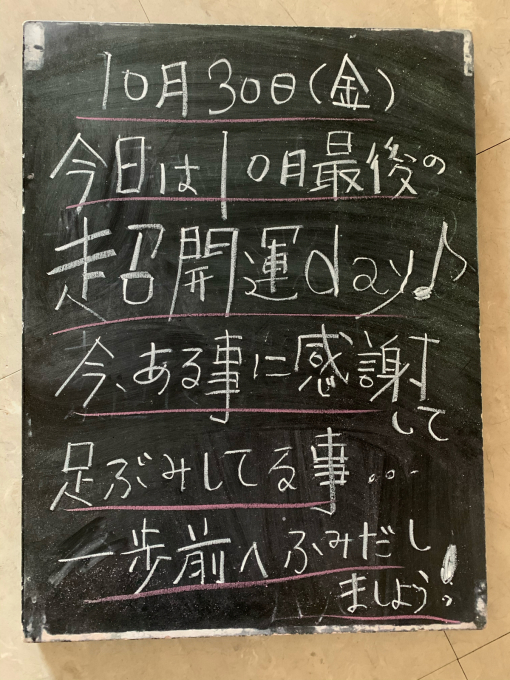 10月30日(金)
今日は10月最後の
超開運day♪
今、ある事に感謝
して
足ぶみしてる事...
一歩前へふみだし
ましょう!